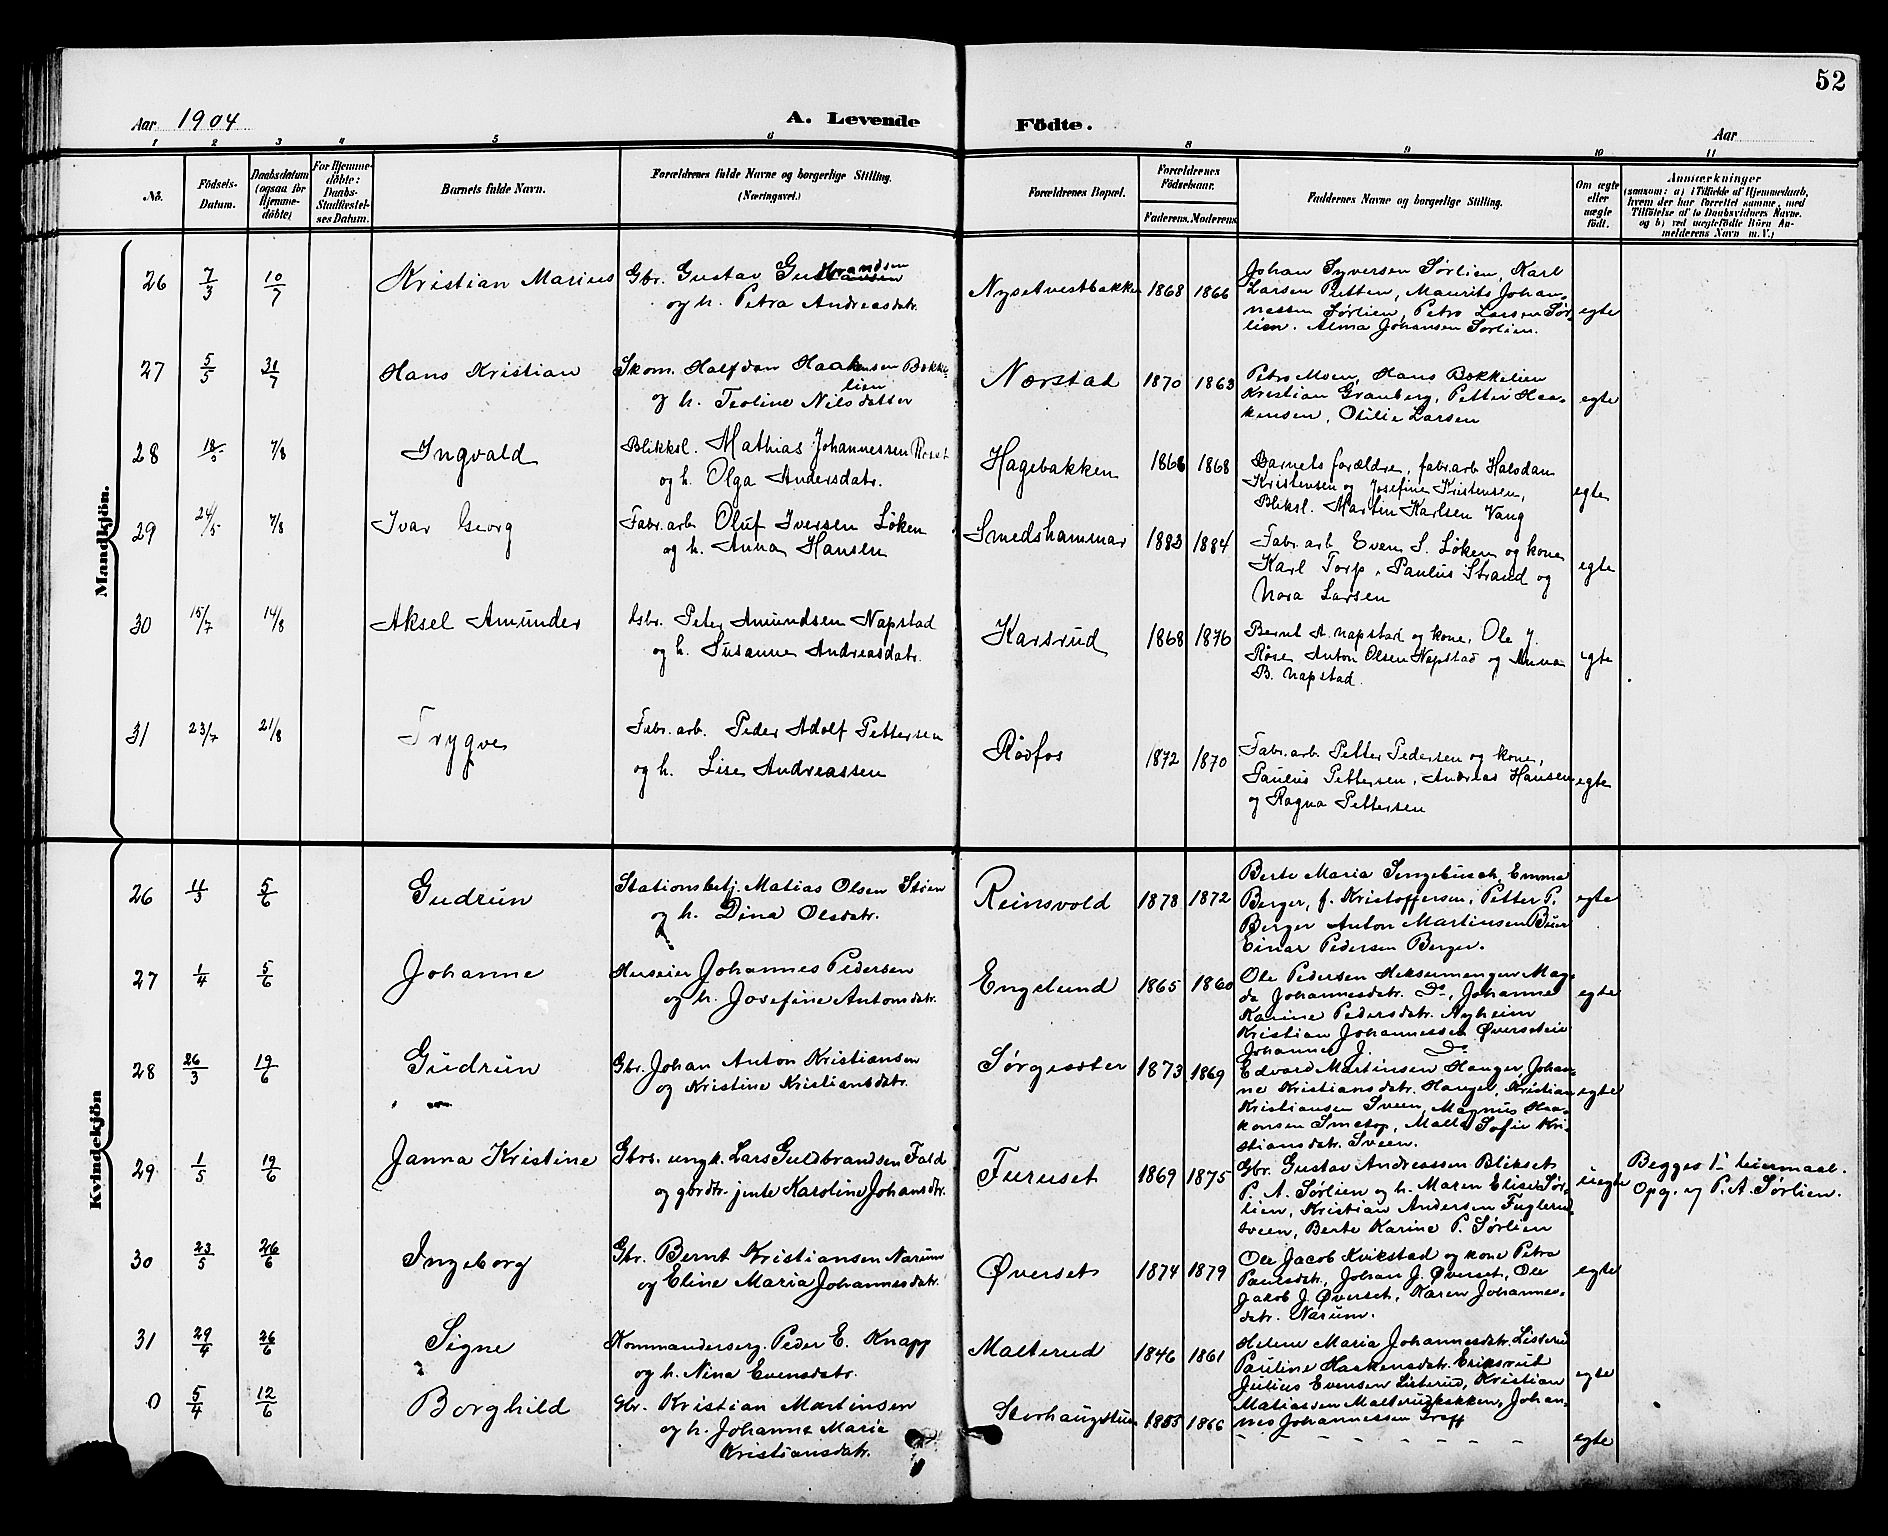 52
Aar 1904
A. Levende Födte.
Aar
1 2 3 4 5 6 8 9 10 11
No.
Födsels-Datum.
Daabsdatum (ogsaa för Hjemme-döbte)
For Hjemme-döbte: Daabs-Stadfæstelses Datum.
Barnets fulde Navn.
Forældrenes fulde Navne og borgerlige Stilling.
(Næringsvei.)
Forældrenes Bopæl.
Forældrenes Födselsaar.
Faderens. Moderens.
Faddernes Navne og borgerlige Stilling.
Om ægte eller uægte födt.
Anmærkninger
(saasom: a) i Tilfælde af Hjemmedaab, hvem der har forrettet samme, med Tilföielse af to Daabsvidners Navne, og b) ved uægtefödte Börn Anmelderens Navn m. V.)
Mandkjön.
26 7/3 10/7 Kristian Marius Gbr. Gustav
og h. Petra Andreasdatr.
Nysetvestbakken 1868 1866
Johan Syversen Sørlien, Karl
Larsen Pletten, Maurits Johan-
nessen Sørlien, Petra Larsen Sør-
lien. Alma Johansen Sørlien.
egte
27 5/5 31/7 Hans Kristian Skom. Halfdan Haakensen Bakke-
lien
og h. Teoline Nilsdatter
Nærstad 1870 1863
Petra Moen, Hans Bakkelien
Kristian Granberg, Petter Haa-
kensen, Otilie Larsen
egte
28 18/5 7/8 Ingvald Blikksl. Mathias Johannessen
og h. Olga Andersdatr.
Hagebakken 1868 1868
Barnets forældre, fabr.arb Halvdan
Kristensen og Josefine Kristensen,
Bliksl. Martin Karlsen Vang
egte
29 24/5 7/8 Ivar Georg Fabr. arb. Oluf Iversen Løken
og h. Anna Hansen
Smedshammar 1883 1884
Fabr. arb Even S. Løken og kone
Karl Torp, Paulus Strand og
Nora Larsen
egte
30 15/7 14/8 Aksel Amunder Gbr. Peter Amundsen Napstad
og h. Susanne Andreasdatr.
Karsrud 1868 1876
Bernt A. Napstad og kone, Ole J.
Røse Anton Olsen Napstad og Anna
B. Napstad.
egte
31 23/7 21/8 Trygve Fabr. arb. Peder Adolf Pettersen
og h. Lise Andreassen
Rødfos 1872 1870
Fabr. arb. Petter Pedersen og kone,
Paulus Pettersen, Andreas Hansen
og Ragna Pettersen
egte
Kvindekjön
26 11/3 5/6 Gudrun Stationsbetj. Matias Olsen Stien
og h. Dina Olsdatr.
Reinsvold 1878 1872
Berte Maria Sengebusch, Emma
Berger, f. Kristoffersen, Petter P.
Berger Anton Martinsen
Einar Pedersen Berger.
egte
27 1/4 5/6 Johanne Herseier Johannes Pedersen
og h. Josefine Antonsdatr.
Engelund 1865 1860
Ole Pedersen Heksumengen Mag-
da Johannesdatr. Do, Johanne
Karine Pedersdatr. Nyheim
Kristian Johannessen Øverseteie
Johannes J. Do
egte
28 26/3 19/6 Gudrun Gbr. Johan Anton Kristiansen
og Kristine Kristiansdatr.
1873 1869
Edvard Martinsen Hanger, Johan-
ne Kristiansdatr. Hanger, Kristian
Kristiansen Sveen, Magnus Haa-
konsen Smetop, Malla Sofie Kri-
stiansdatr. Sveen.
egte
29 1/5 19/6 Janna Kristine Gbrs. ungk. Lars Guldbrandsen Fald
og gbrdtr. jente Karoline Johansdtr.
Furuset 1869 1875
Gbr. Gustav Andreassen Blikset
P. A. Sørlien og h. Maren Elise Sør-
lien, Kristian Andersen Fuglerud-
sveen, Berte Karine P. Sørlien
uegte
Begges 1ste leiermaal.
Opg. af P. A. Sørlien.
30 23/5 26/6 Ingeborg Gbr. Bernt Kristiansen Narum
og Eline Maria Johannesdatr.
Øverset 1874 1879
Ole Jacob Kvikstad og kone Petra
Paulsdatr., Johan J. Øverset, Ole
Jakob J. Øverset, Karen Johannes-
datr. Narum.
egte
31 29/4 26/6 Signe Kommanderserg. Peder E. Knapp
og h. Nina Evensdatr.
Malterud 1846 1861
Helene Maria Johannesdatr. Listerud
Pauline Haakensdatr. Eriksrud
Julius Evensen Listerud, Kristian
Matiassen Malterudbakken, Johan-
nes Johannessen Graff
egte
0 5/4 12/6 Borghild Gbr. Kristian Martinsen
og h. Johanne Marie
Kristiansdatr.
Storhaugstuen 1855 1866
egte